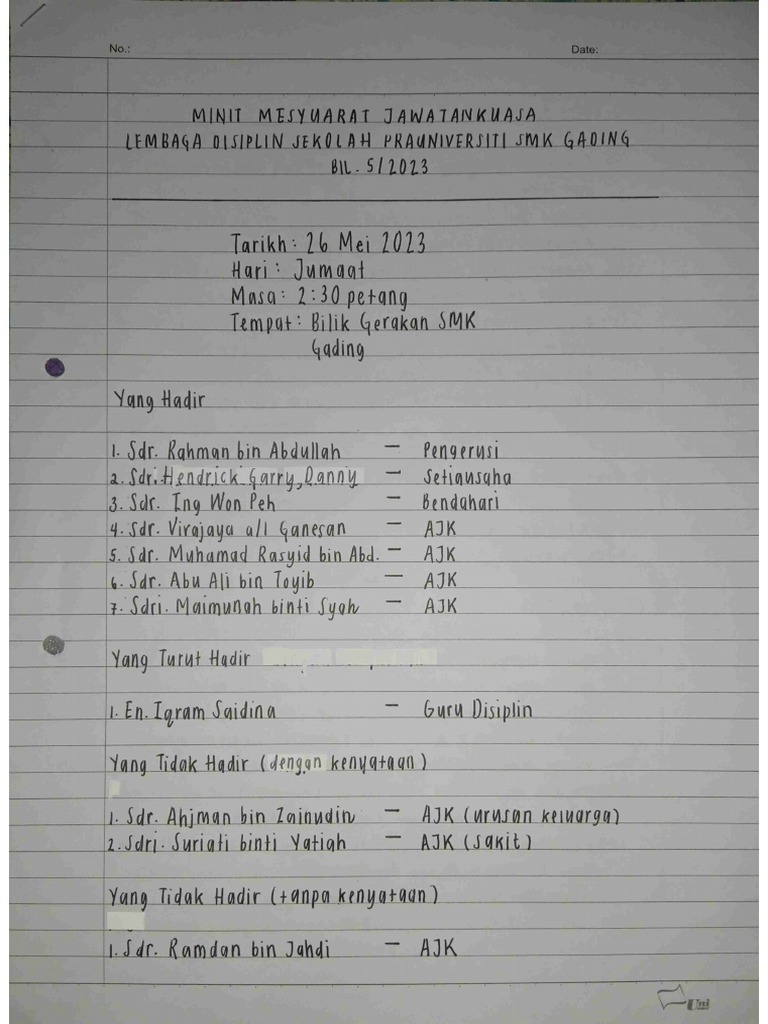 No.: Date:
MINIT MESYUARAT JAWATANKUASA
LEMBAGA DISIPLIN SEKOLAH PRAUNIVERSITI SMK GADING
BIL. 5/2023
Tarikh: 26 Mei 2023
Hari: Jumaat
Masa: 2:30 petang
Tempat: Bilik Gerakan SMK
Gading
Yang Hadir
1. Sdr. Rahman bin Abdullah — Pengerusi
2. Sdr. Hendrick Garry, Danny — Setiausaha
3. Sdr. Ing Won Peh — Bendahari
4. Sdr. Virajaya a/l Ganesan — AJK
5. Sdr. Muhamad Rasyid bin Abd. — AJK
6. Sdr. Abu Ali bin Toyib — AJK
7. Sdri. Maimunah binti Syah — AJK
Yang Turut Hadir
1. En. Iqram Saidina — Guru Disiplin
Yang Tidak Hadir (dengan kenyataan)
1. Sdr. Ahjman bin Zainudin — AJK (urusan keluarga)
2. Sdri. Suriati binti Yatiah — AJK (sakit)
Yang Tidak Hadir (tanpa kenyataan)
1. Sdr. Ramdan bin Jahdi — AJK